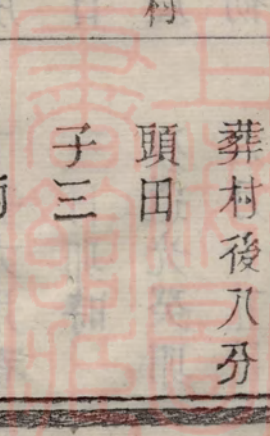 村
葬村後八分
頭田
子三